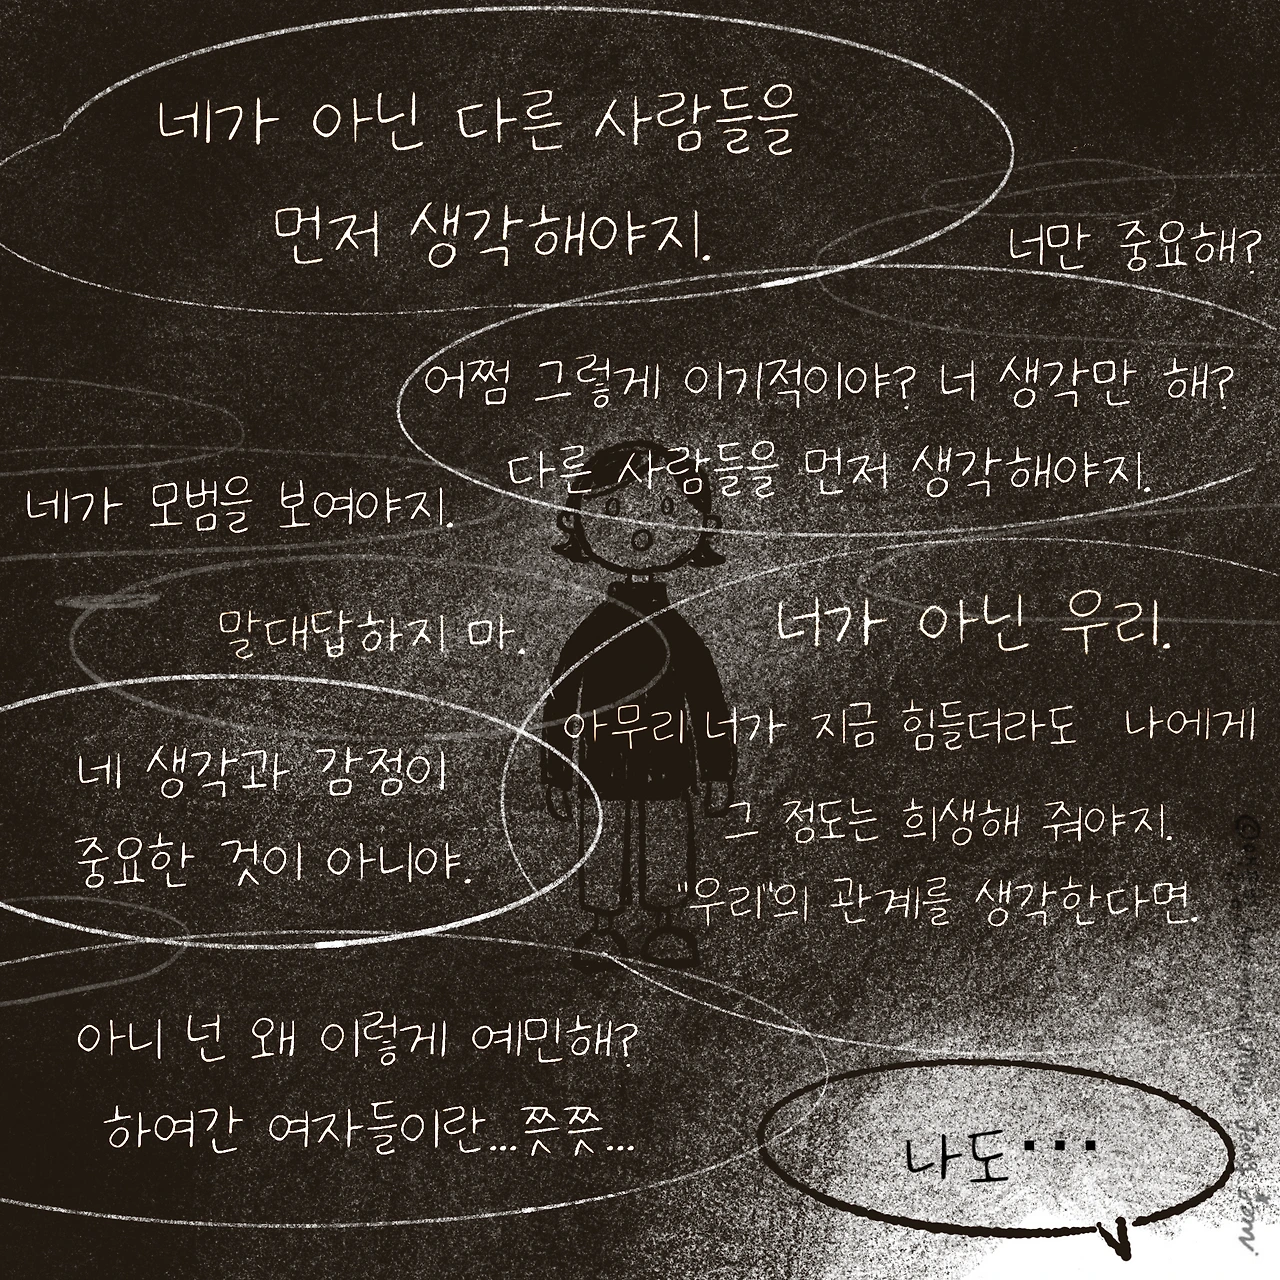 네가 아닌 다른 사람들을
먼저 생각해야지.
너만 중요해?
어쩜 그렇게 이기적이야? 너 생각만 해?
다른 사람들을 먼저 생각해야지.
네가 모범을 보여야지.
말대답하지 마.
너가 아닌 우리.
아무리 너가 지금 힘들더라도 나에게
그 정도는 희생해 줘야지.
"우리"의 관계를 생각한다면.
네 생각과 감정이
중요한 것이 아니야.
아니 넌 왜 이렇게 예민해?
하여간 여자들이란...쯧쯧...
나도...